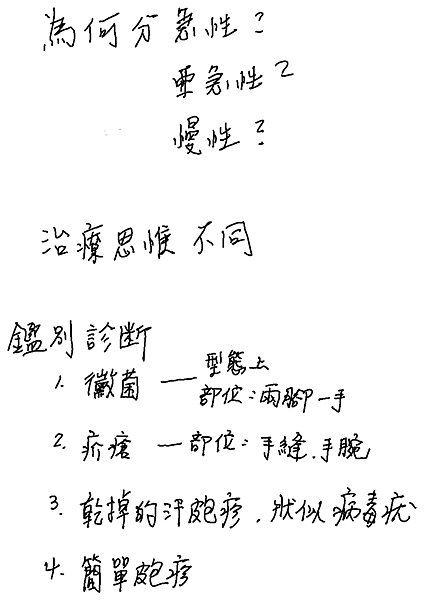 為何分急性?
亞急性?
慢性?
治療思惟不同
鑑別診斷
1. 黴菌 — 型態上
部位:兩腳一手
2. 疥瘡 — 部位:手縫、手腕
3. 乾掉的汗皰疹,狀似病毒疣
4. 簡單皰疹